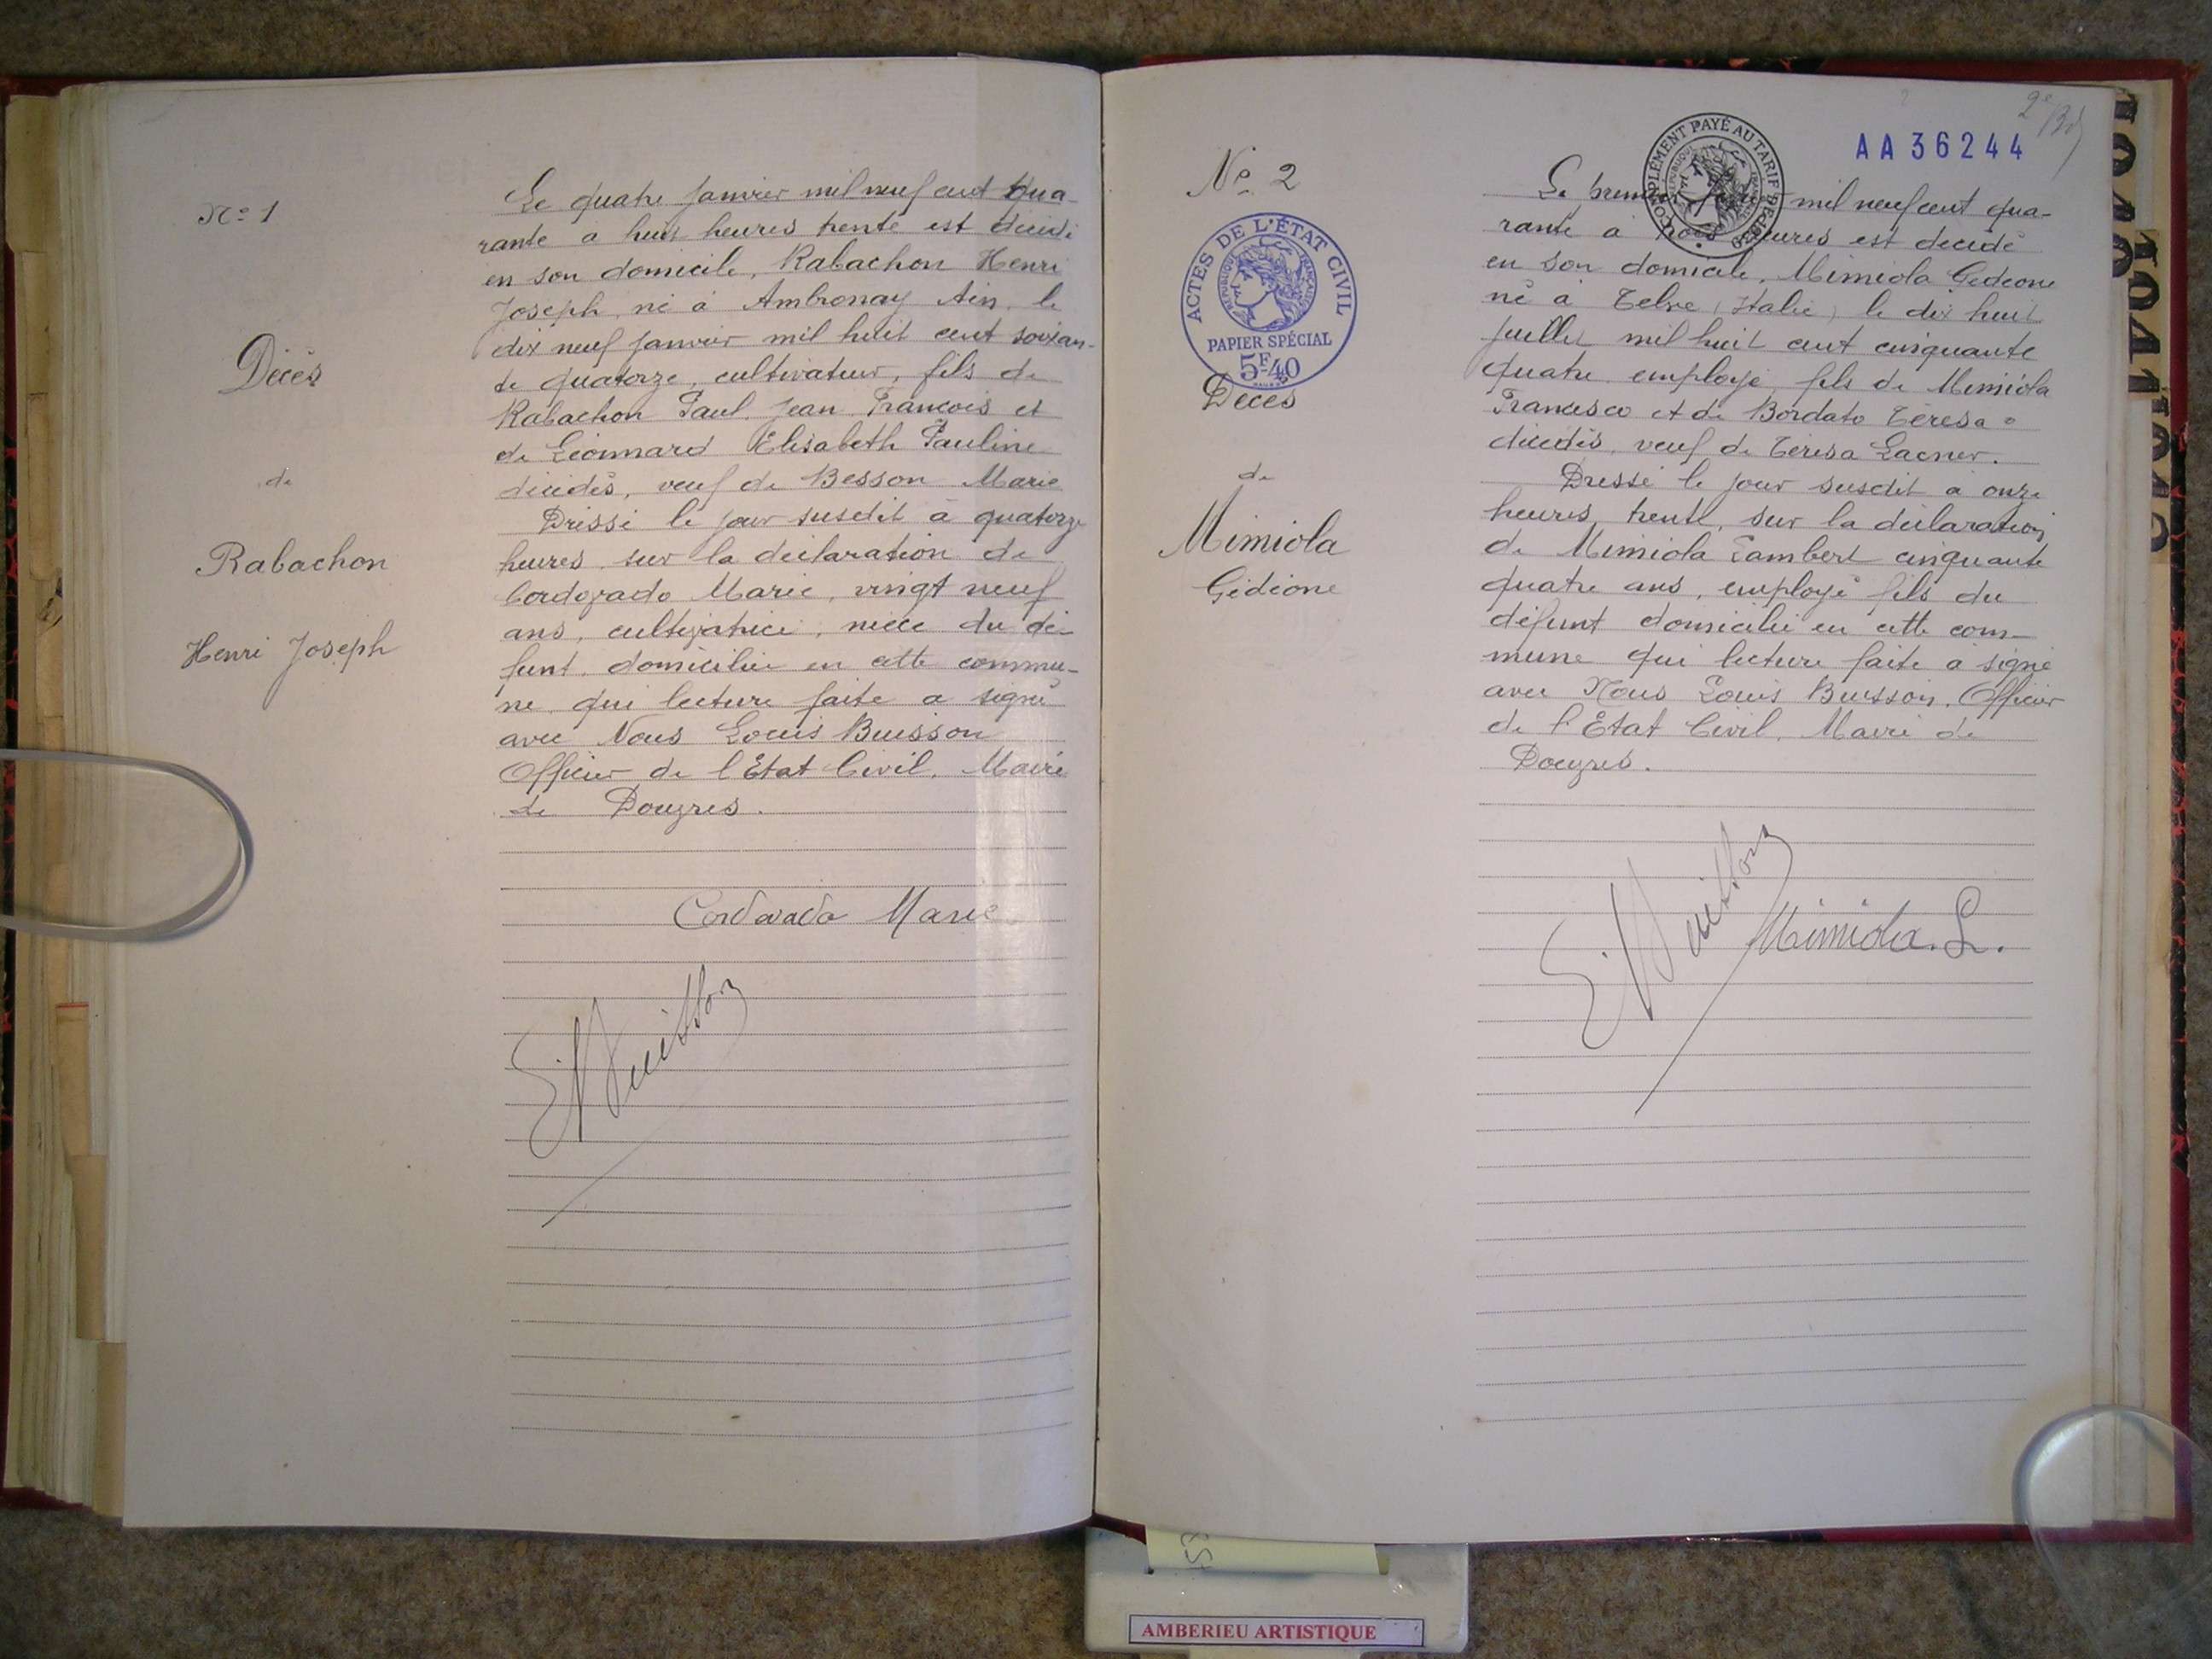 N° 1
Décès
de
Rabachon
Henri Joseph
Le quatre janvier mil neuf cent qua-
rante a huit heures trente est décédé
en son domicile, Rabachon Henri
Joseph, né à Ambronay Ain, le
dix neuf janvier mil huit cent soixan-
te quatorze, cultivateur, fils de
Rabachon Paul Jean François et
de Léonnard Elisabeth Pauline
décédés, veuf de Besson Marie
Dressé le jour susdit à quatorze
heures sur la déclaration de
Cordovado Marie, vingt neuf
ans, cultivatrice, nièce du dé-
funt, domiciliée en cette commu-
ne qui lecture faite a signé
avec Nous Louis Buisson
Officier de l'Etat Civil, Maire
de Douvres.
Cordovado Marie
L. Buisson
N° 2
ACTES DE L'ÉTAT CIVIL
RÉPUBLIQUE FRANÇAISE
PAPIER SPÉCIAL
5F40
Décès
de
Mimiola
Gédéone
2e
AA 36244
COMPLÉMENT PAYÉ AU TARIF DE
RÉPUBLIQUE FRANÇAISE
Le mil neuf cent qua-
rante à trois heures est décédé
en son domicile, Mimiola Gedeone
né à Telve (Italie) le dix huit
juillet mil huit cent cinquante
quatre employé, fils de Mimiola
Francesco et de Bordato Teresa
décédés, veuf de Térésa Lacner.
Dressé le jour susdit à onze
heures trente, sur la déclaration
de Mimiola Lambert cinquante
quatre ans, employé fils du
défunt domicilié en cette com-
mune qui lecture faite a signé
avec Nous Louis Buisson, Officier
de l'Etat Civil, Maire de
Douvres.
L. Buisson
Mimiola. L.
AMBERIEU ARTISTIQUE